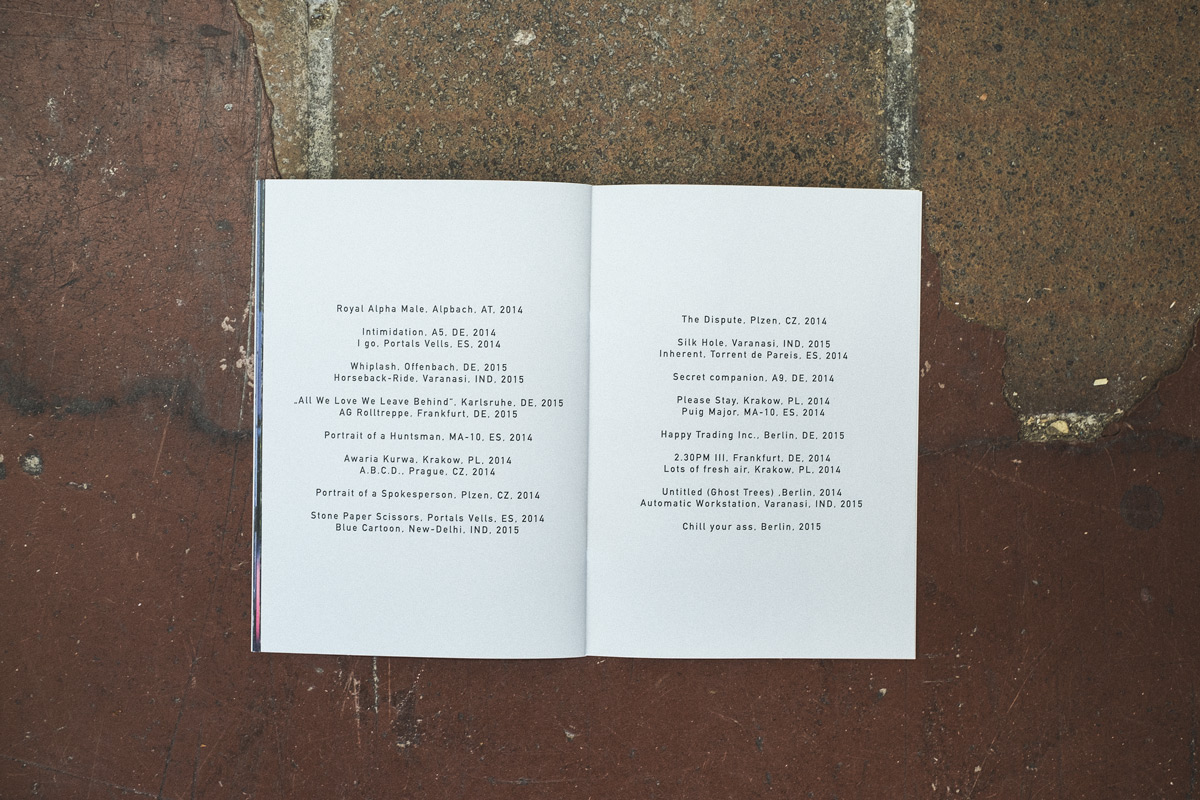 Royal Alpha Male, Alpbach, AT, 2014
Intimidation, A5, DE, 2014
I go, Portals Vells, ES, 2014
Whiplash, Offenbach, DE, 2015
Horseback-Ride, Varanasi, IND, 2015
„All We Love We Leave Behind“, Karlsruhe, DE, 2015
AG Rolltreppe, Frankfurt, DE, 2015
Portrait of a Huntsman, MA-10, ES, 2014
Awaria Kurwa, Krakow, PL, 2014
A.B.C.D., Prague, CZ, 2014
Portrait of a Spokesperson, Plzen, CZ, 2014
Stone Paper Scissors, Portals Vells, ES, 2014
Blue Cartoon, New-Delhi, IND, 2015
The Dispute, Plzen, CZ, 2014
Silk Hole, Varanasi, IND, 2015
Inherent, Torrent de Pareis, ES, 2014
Secret companion, A9, DE, 2014
Please Stay, Krakow, PL, 2014
Puig Major, MA-10, ES, 2014
Happy Trading Inc., Berlin, DE, 2015
2.30PM III, Frankfurt, DE, 2014
Lots of fresh air, Krakow, PL, 2014
Untitled (Ghost Trees) ,Berlin, 2014
Automatic Workstation, Varanasi, IND, 2015
Chill your ass, Berlin, 2015